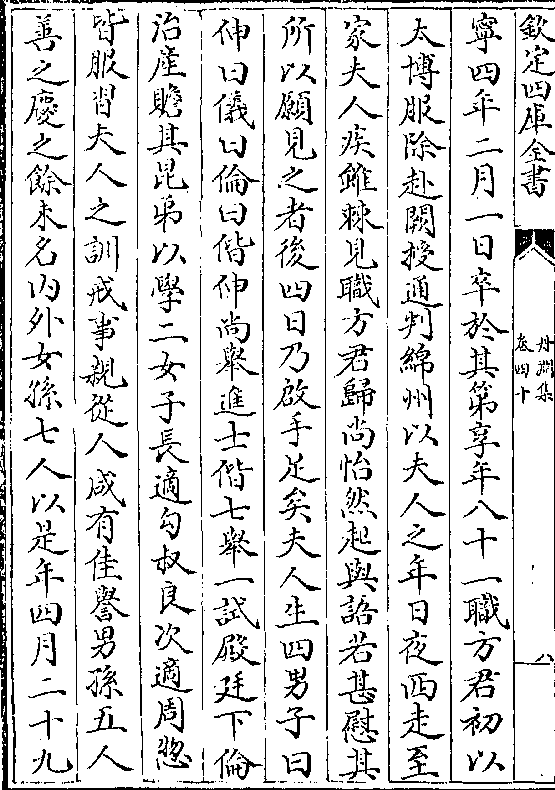 欽定四庫全書
丹淵集
卷四十
八
寧四年二月一日卒於其第享年八十一職方君初以
太博服除赴闕授通判綿州以夫人之年日夜西走至
家夫人疾雖棘見職方君歸尚怡然起與語若甚慰其
所以願見之者後四日乃啟手足矣夫人生四男子曰
伸曰儀曰倫曰偕伸尚舉進士偕七舉一試殿廷下倫
治產贍其昆弟以學二女子長適勾叔良次適周愻
皆服習夫人之訓戒事親從人咸有佳譽男孫五人
善之慶之餘未名内外女孫七人以是年四月二十九